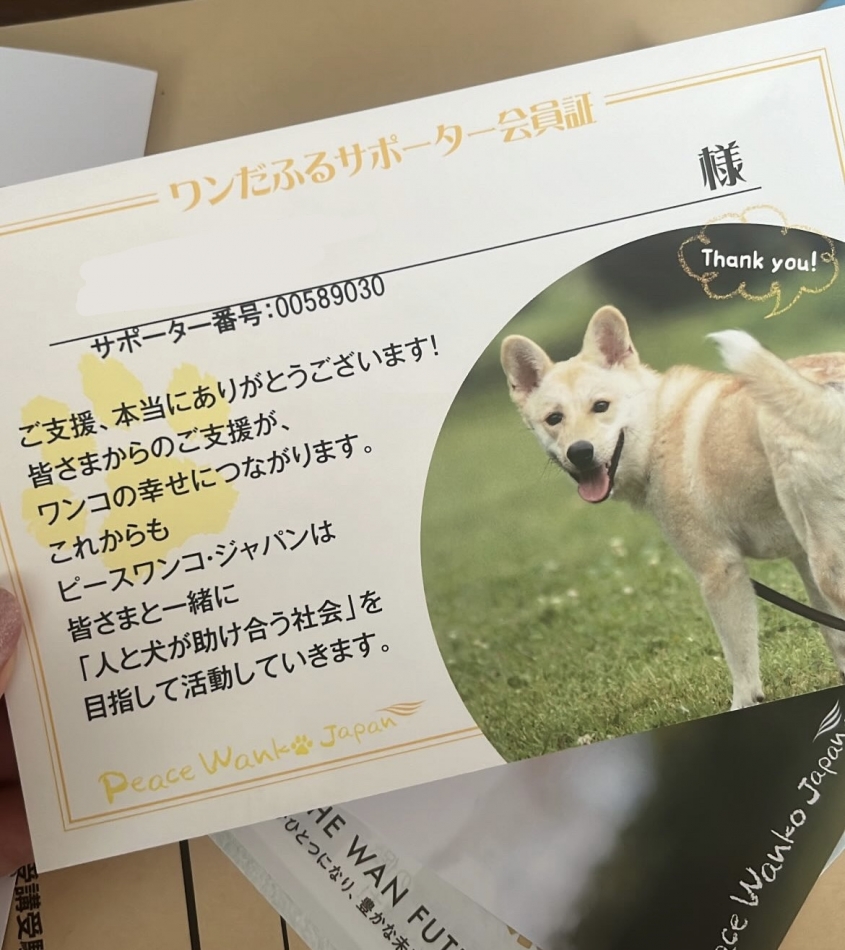 ワンだふるサポーター会員証
様
サポーター番号:00589030
Thank you!
ご支援、本当にありがとうございます!
皆さまからのご支援が、
ワンコの幸せにつながります。
これからも
ピースワンコ・ジャパンは
皆さまと一緒に
「人と犬が助け合う社会」を
目指して活動していきます。
Peace Wanko Japan
HE WAN FUT
ひとつになり、豊かな未
ace Wanko Japan
受講受